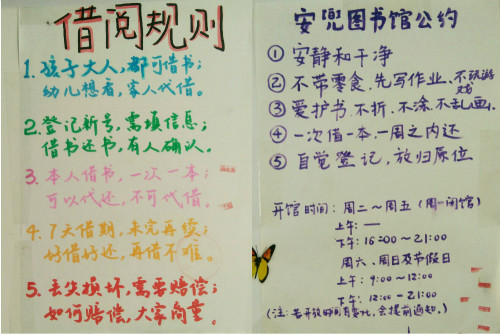 借阅规则
1.孩子大人，都可借书；
幼儿想看，家人代借。
2.登记新号，需填信息；
借书还书，有人确认。
3.本人借书，一次一本；
可以代还，不可代借。
4.7天借期，未完再续；
好借好还，再借不难。
5.丢失损坏，需要赔偿；
如何赔偿，大家商量。
安兜图书馆公约
①安静和干净
②不带零食，先写作业，不玩游戏
③爱护书，不折，不涂，不乱画。
④一次借一本，一周之内还
⑤自觉登记，放归原位
开馆时间：周二～周五（周一闭馆）
上午：——
下午：16:00～21:00
周六、周日及节假日
上午：9:00～12:00
下午：12:00-21:00
（注：若开放时间有变化，会提前通知。）